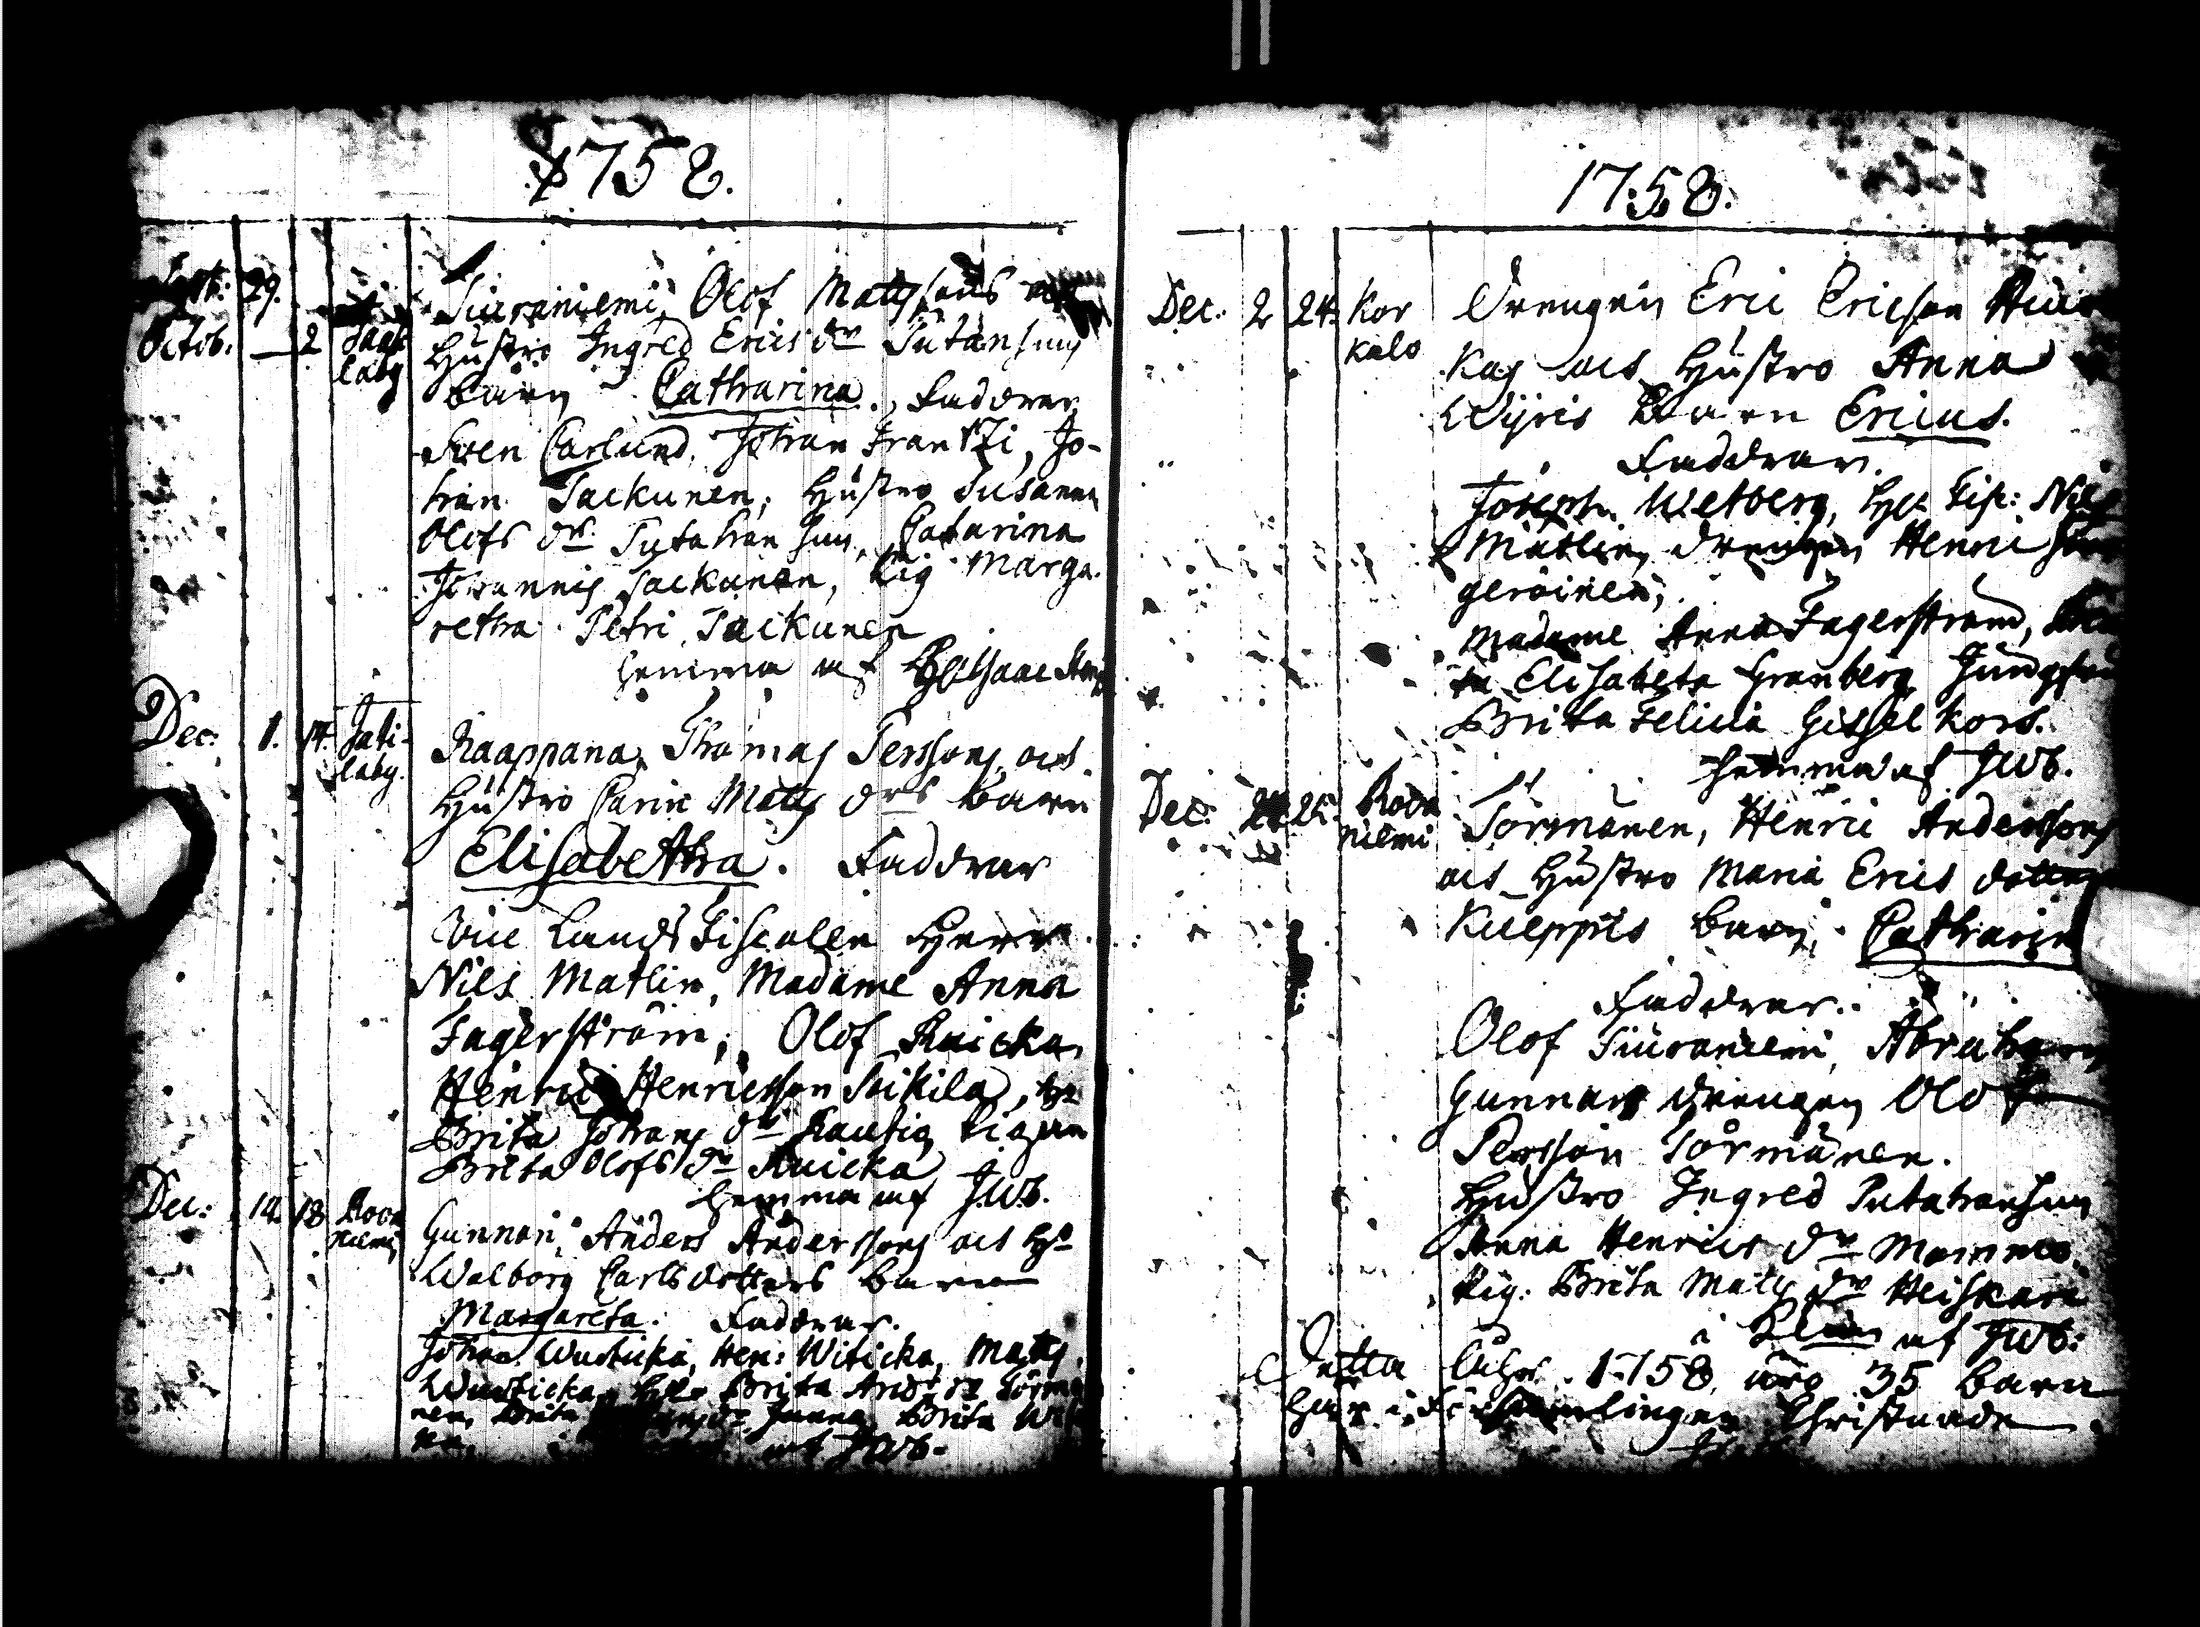 1758.
Sept: 29.
Octob. — 2 Saar
laby
Siuraniemi, Olof Matssons
Hustro Ingred Erics dr Putansuu
barn Catharina. Faddrar
Sven Carlund, Johan Frantzi, Jo-
han Packunen, Hustro Susanna
Olofs dr. Putahan Suu, Catarina
Johannis Packunen, Pig Marga-
retha Petri Packunen
hemma af
Dec. 1. 14. Jati-
laby.
Kaappana, Thomas Perssons, och
Hustro Carin Mats drs barn
Elisabetha. Faddrar
Vice Lands Fiscalen Herr
Nils Matlin, Madame Anna
Fagerström, Olof Kuicka,
Henric Henricsson Sikila, H:
Brita Johans dr Rautio, Pigan
Brita Olofs dr Kuicka
hemma af JWb.
Dec: 12. 18 Rova
niemi
Gunnari, Anders Anderssons och H:o
Walborg Carlsdotters barn
Margareta. Faddrar.
Johan Wusticka, Hen: Witicka, Mats
Wusticka, Brita And: dr Sörma
nen, Brita
af JWb.
1758.
Dec. 2 24. Kor
kalo
Drengen Eric Ericson
och Hustro Anna
Wijris Barn Ericus.
Faddrar.
Joseph Wetberg, Fisc: Nils
Matlin, drengen Henric
geroinen,
Madame Anna Fagerström,
Elisabeta Granberg, Jungfru
Brita Felicia Gisselkors.
hemma af JWb.
Dec: 25. Rova
niemi
Sörmänen, Henric Anderssons
och Hustro Maria Erics dotters
Kueppis barn, Catharina
Faddrar.
Olof Siuraniemi, Abraham
Gunnari drengen Olof
Persson Sörmänen.
Hustro Ingred Putahansuu
Anna Henrics dr Mommo,
Pig: Brita Mats dr Heiskari
i af JWb:
Detta Åhr 1758, äro 35 barn
här i Församlingen Christnade